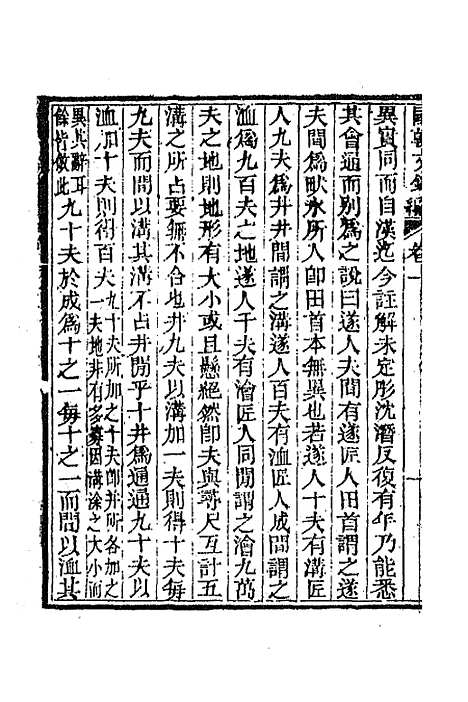 國朝文錄 卷一
異實同而自漢迄今註解未定彤沈潛反復有年乃能悉
其會通而別爲之說曰遂人夫間有遂匠人田首謂之遂
夫間爲畎水所入卽田首本無異也若遂人十夫有溝匠
人九夫爲井井間謂之溝遂人百夫有洫匠人成間謂之
洫爲九百夫之地遂人千夫有澮匠人同間謂之澮九萬
夫之地則地形有大小或且懸絕然卽夫與尋尺互計五
溝之所占要無不合也井九夫以溝加一夫則得十夫每
九夫而間以溝其溝不占井間乎十井爲通通九十夫以
洫加十夫則得百夫九十夫所加之十夫卽井所各加之
一夫地非有多寡因溝涂之大小而
異其辭耳
餘皆倣此九十夫於成爲十之一每十之一而間以洫其